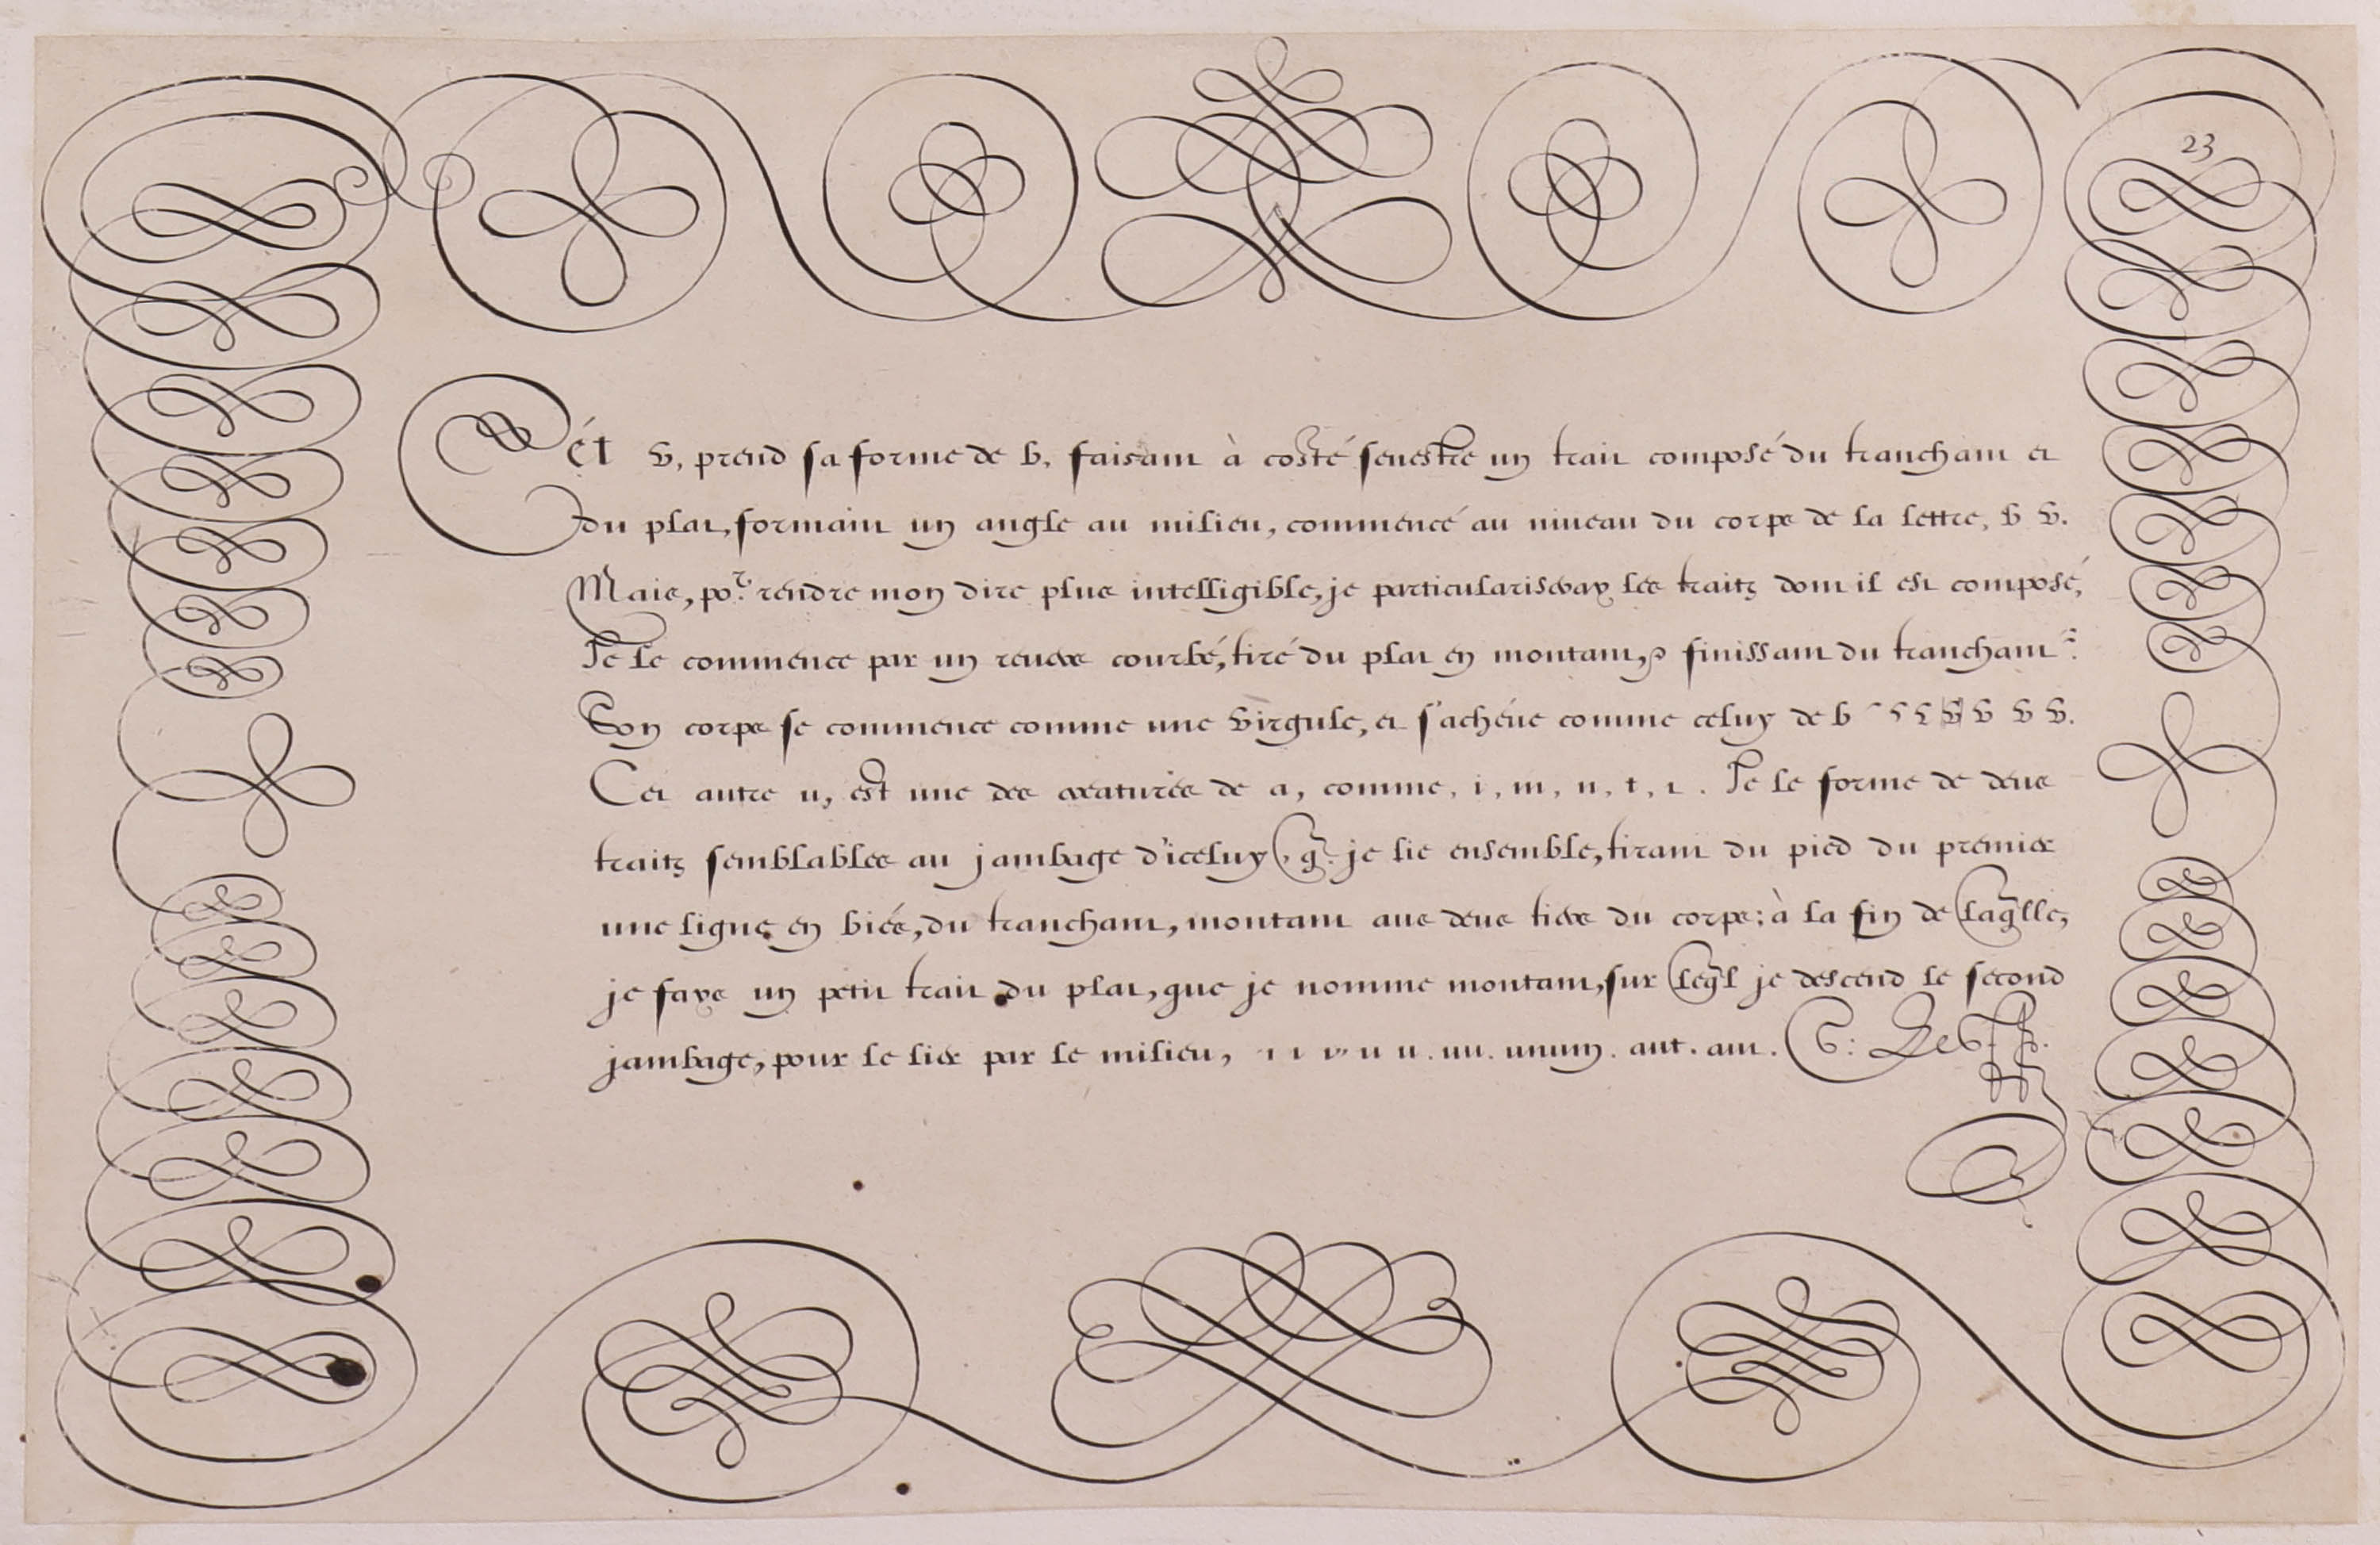 23
Cét v, prend sa forme de b, faisant à costé senestre un trait composé du tranchant et
du plat, formant un angle au milieu, commencé au niueau du corps de la lettre, b v.
Mais, po.r rendre mon dire plus intelligible, je particulariseray les traitz dont il est composé,
Je le commence par un reuers courbé, tiré du plat en montant, & finissant du tranchant:
Son corps se commence comme une virgule, et s'achéue comme celuy de b v v v v.
Cet autre u, est une des creatures de a, comme, i, m, n, t, r. Je le forme de deus
traitz semblables au jambage d'iceluy, q. je lie ensemble, tirant du pied du premier
une ligne en biés, du tranchant, montant aus deus tiers du corps: à la fin de laqlle,
je fays un petit trait du plat, que je nomme montant, sur leql je descend le second
jambage, pour le lier par le milieu, ı ı u u. uu. unum. aut. aut.